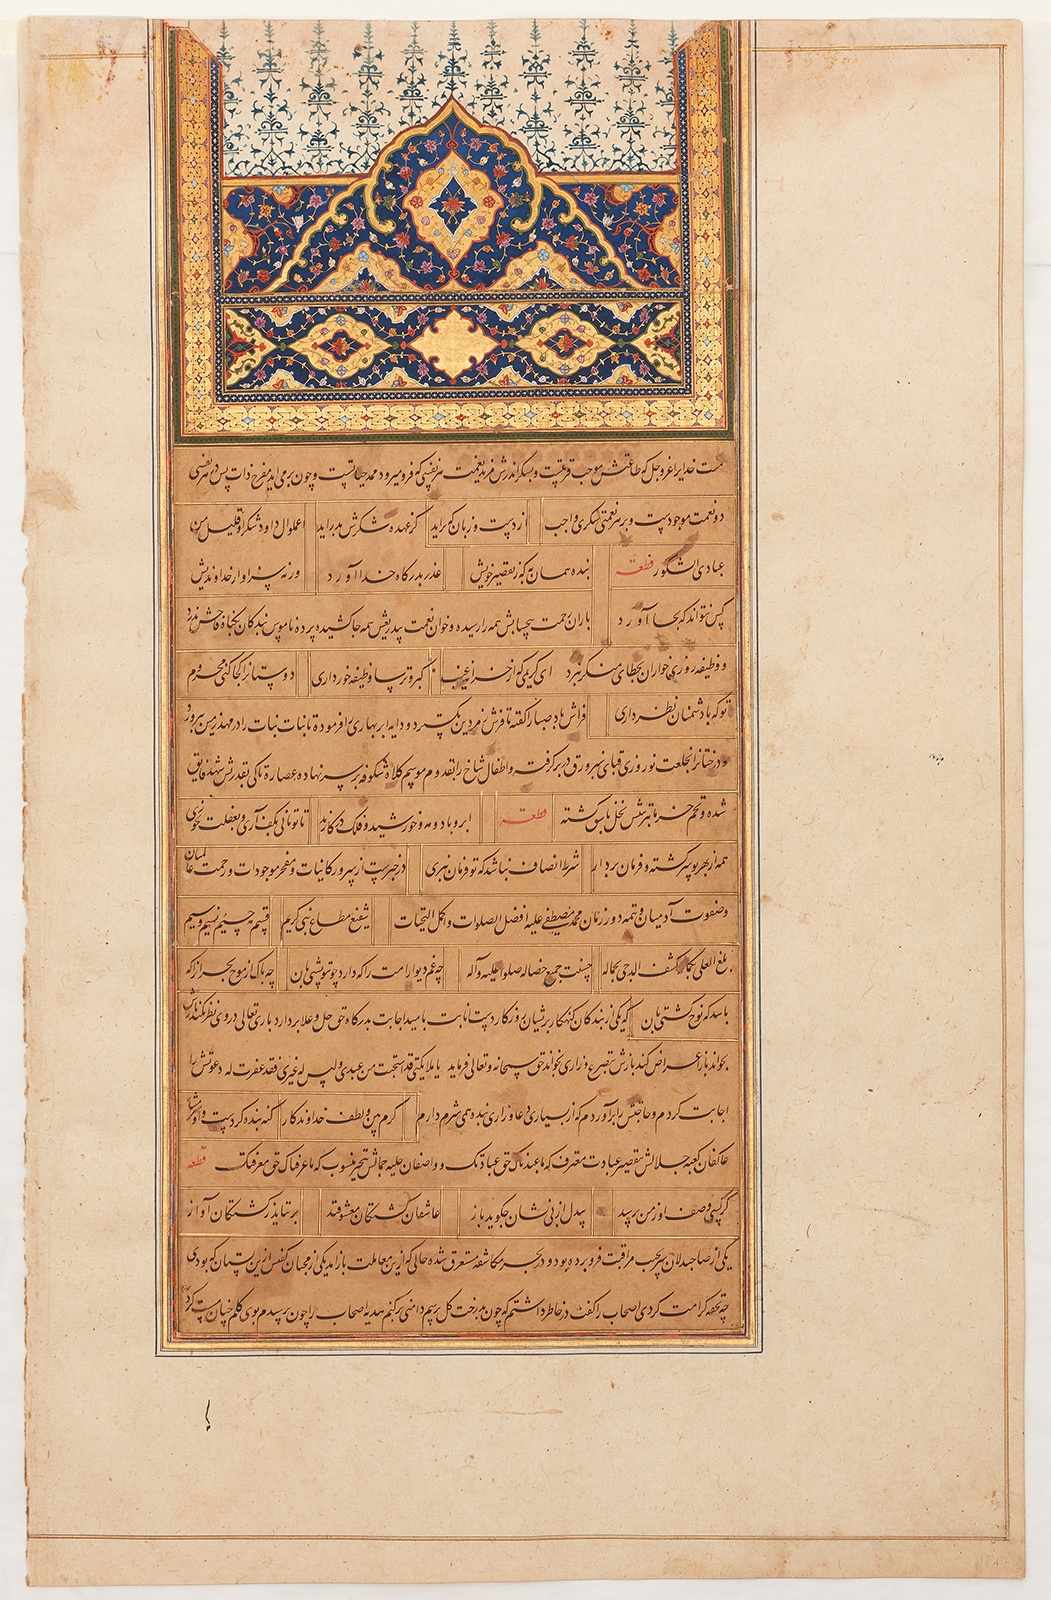 منت خدایرا عز و جل که طاعتش موجب قربتست و بشکر اندرش مزید نعمت هر نفسی که فرو میرود ممد حیاتست و چون برمی آید مفرح ذات پس در هر نفسی
دو نعمت موجودست و بر هر نعمتی شکری واجب از دست و زبان که براید کز عهده شکرش بدر آید اعملوا آل داود شکرا و قلیل من
عبادی الشکور قطعه بنده همان به که ز تقصیر خویش عذر بدرگاه خدا آورد ورنه سزاوار خداوندیش
کس نتواند که بجا آورد باران رحمت بیحسابش همه را رسیده و خوان نعمت بیدریغش همه جا کشیده پرده ناموس بندگان بگناه فاحش ندرد
و وظیفه روزی خواران بخطای منکر نبرد ای کریمی که از خزانه غیب گبر و ترسا وظیفه خور داری دوستانرا کجا کنی محروم
تو که با دشمنان نظر داری فراش باد صبا را گفته تا فرش زمردین بگسترد و دایه ابر بهاری را فرموده تا بنات نبات را در مهد زمین بپرورد
و درختانرا بخلعت نوروزی قبای سبز ورق در بر گرفته و اطفال شاخ را بقدوم موسم کلاه شکوفه بر سر نهاده عصاره تاکی بقدرتش شهد فایق
شده و تخم خرما بتربیتش نخل باسق گشته قطعه ابر و باد و مه و خورشید و فلک در کارند تا تو نانی بکف آری و بغفلت نخوری
همه از بهر تو سرگشته و فرمان بردار شرط انصاف نباشد که تو فرمان نبری در خبرست از سرور کاینات و مفخر موجودات و رحمت عالمیان
و صفوت آدمیان و تتمه دور زمان محمد مصطفی علیه افضل الصلوات و اکمل التحیات شفیع مطاع نبی کریم قسیم جسیم نسیم وسیم
بلغ العلی بکماله کشف الدجی بجماله حسنت جمیع خصاله صلوا علیه و آله چه غم دیوار امت را که دارد چو تو پشتیبان چه باک از موج بحر آنرا که
باشد نوح کشتیبان که یکی از بندگان گنهکار پریشان روزگار دست انابت بامید اجابت بدرگاه حق جل و علا بردارد باری تعالی در وی نظر نکند بازش
بخواند باز اعراض کند بازش بتضرع و زاری بخواند حق سبحانه و تعالی فرماید یا ملایکتی قد استجبت من عبدی ولیس له غیری فقد غفرت له دعوتش را
اجابت کردم و حاجتش را برآوردم که از بسیاری دعا و زاری بنده همی شرم دارم کرم بین و لطف خداوندگار گنه بنده کردست و او شرمسار
عاکفان کعبه جلالش بتقصیر عبادت معترف که ما عبدناک حق عبادتک و واصفان حلیه جمالش بتحیر منسوب که ما عرفناک حق معرفتک قطعه
گر کسی وصف او ز من پرسد بیدل از بی نشان چگوید باز عاشقان کشتگان معشوقند بر نیاید ز کشتگان آواز
یکی از صاحبدلان سر بجیب مراقبت فرو برده بود و در بحر مکاشفه مستغرق شده حالی که ازین معاملت باز آمد یکی از محبان گفتش ازین بستان که بودی
چه تحفه کرامت کردی اصحاب را گفت در خاطر داشتم که چون بدرخت گل برسم دامنی پر کنم هدیه اصحاب را چون برسیدم بوی گلم چنان مست کرد که